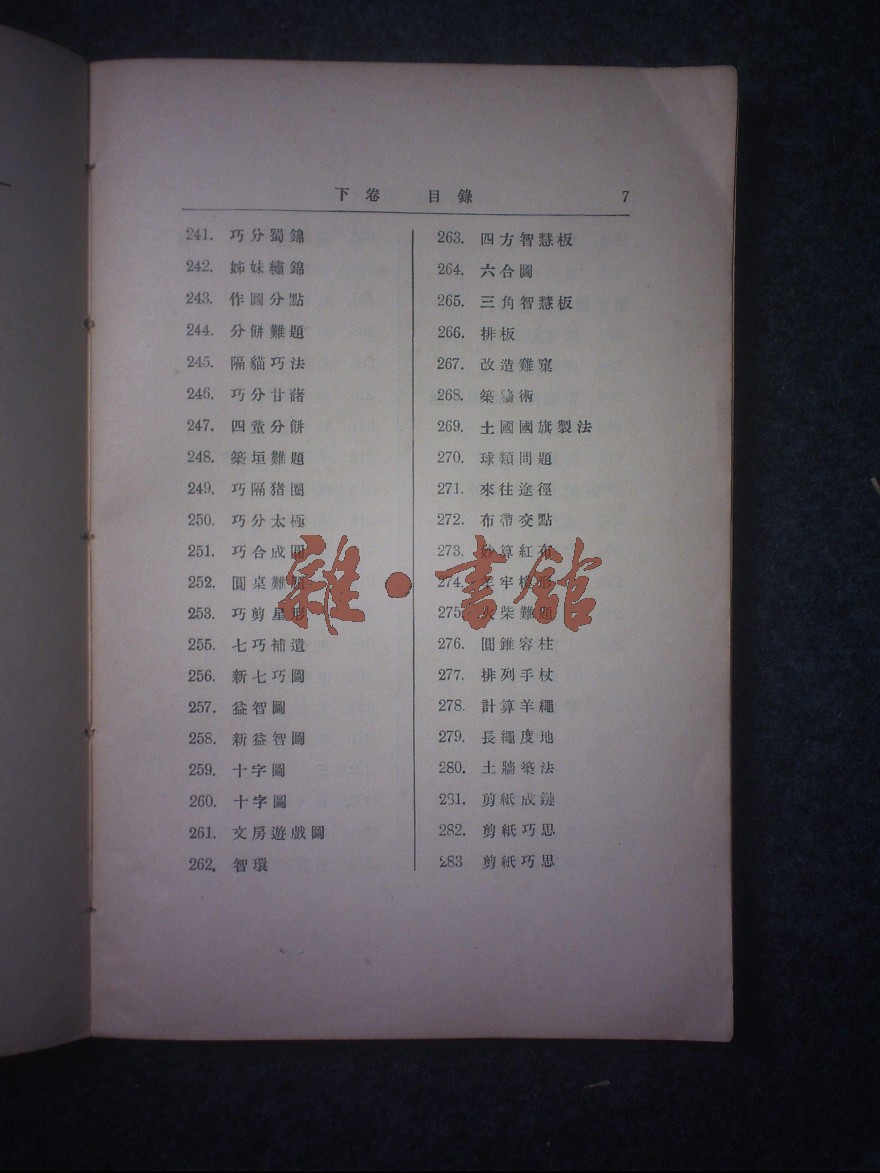 下卷 目錄 7
241. 巧分蜀錦
242. 姊妹繡錦
243. 作圖分點
244. 分餅難題
245. 隔貓巧法
246. 巧分甘藷
247. 四童分餅
248. 築垣難題
249. 巧隔猪圈
250. 巧分太極
251. 巧合成圓
252. 圓桌難題
253. 巧剪星形
255. 七巧補遺
256. 新七巧圖
257. 益智圖
258. 新益智圖
259. 十字圖
260. 十字圖
261. 文房遊戲圖
262. 智環
263. 四方智慧板
264. 六合圖
265. 三角智慧板
266. 排板
267. 改造雞窠
268. 築牆術
269. 土國國旗製法
270. 球類問題
271. 來往途徑
272. 布帶交點
273. 妙算紅布
274. 羊牢樁形
275. 火柴難題
276. 圓錐容柱
277. 排列手杖
278. 計算羊繩
279. 長繩度地
280. 土牆築法
281. 剪紙成鏈
282. 剪紙巧思
283 剪紙巧思
雜·書館